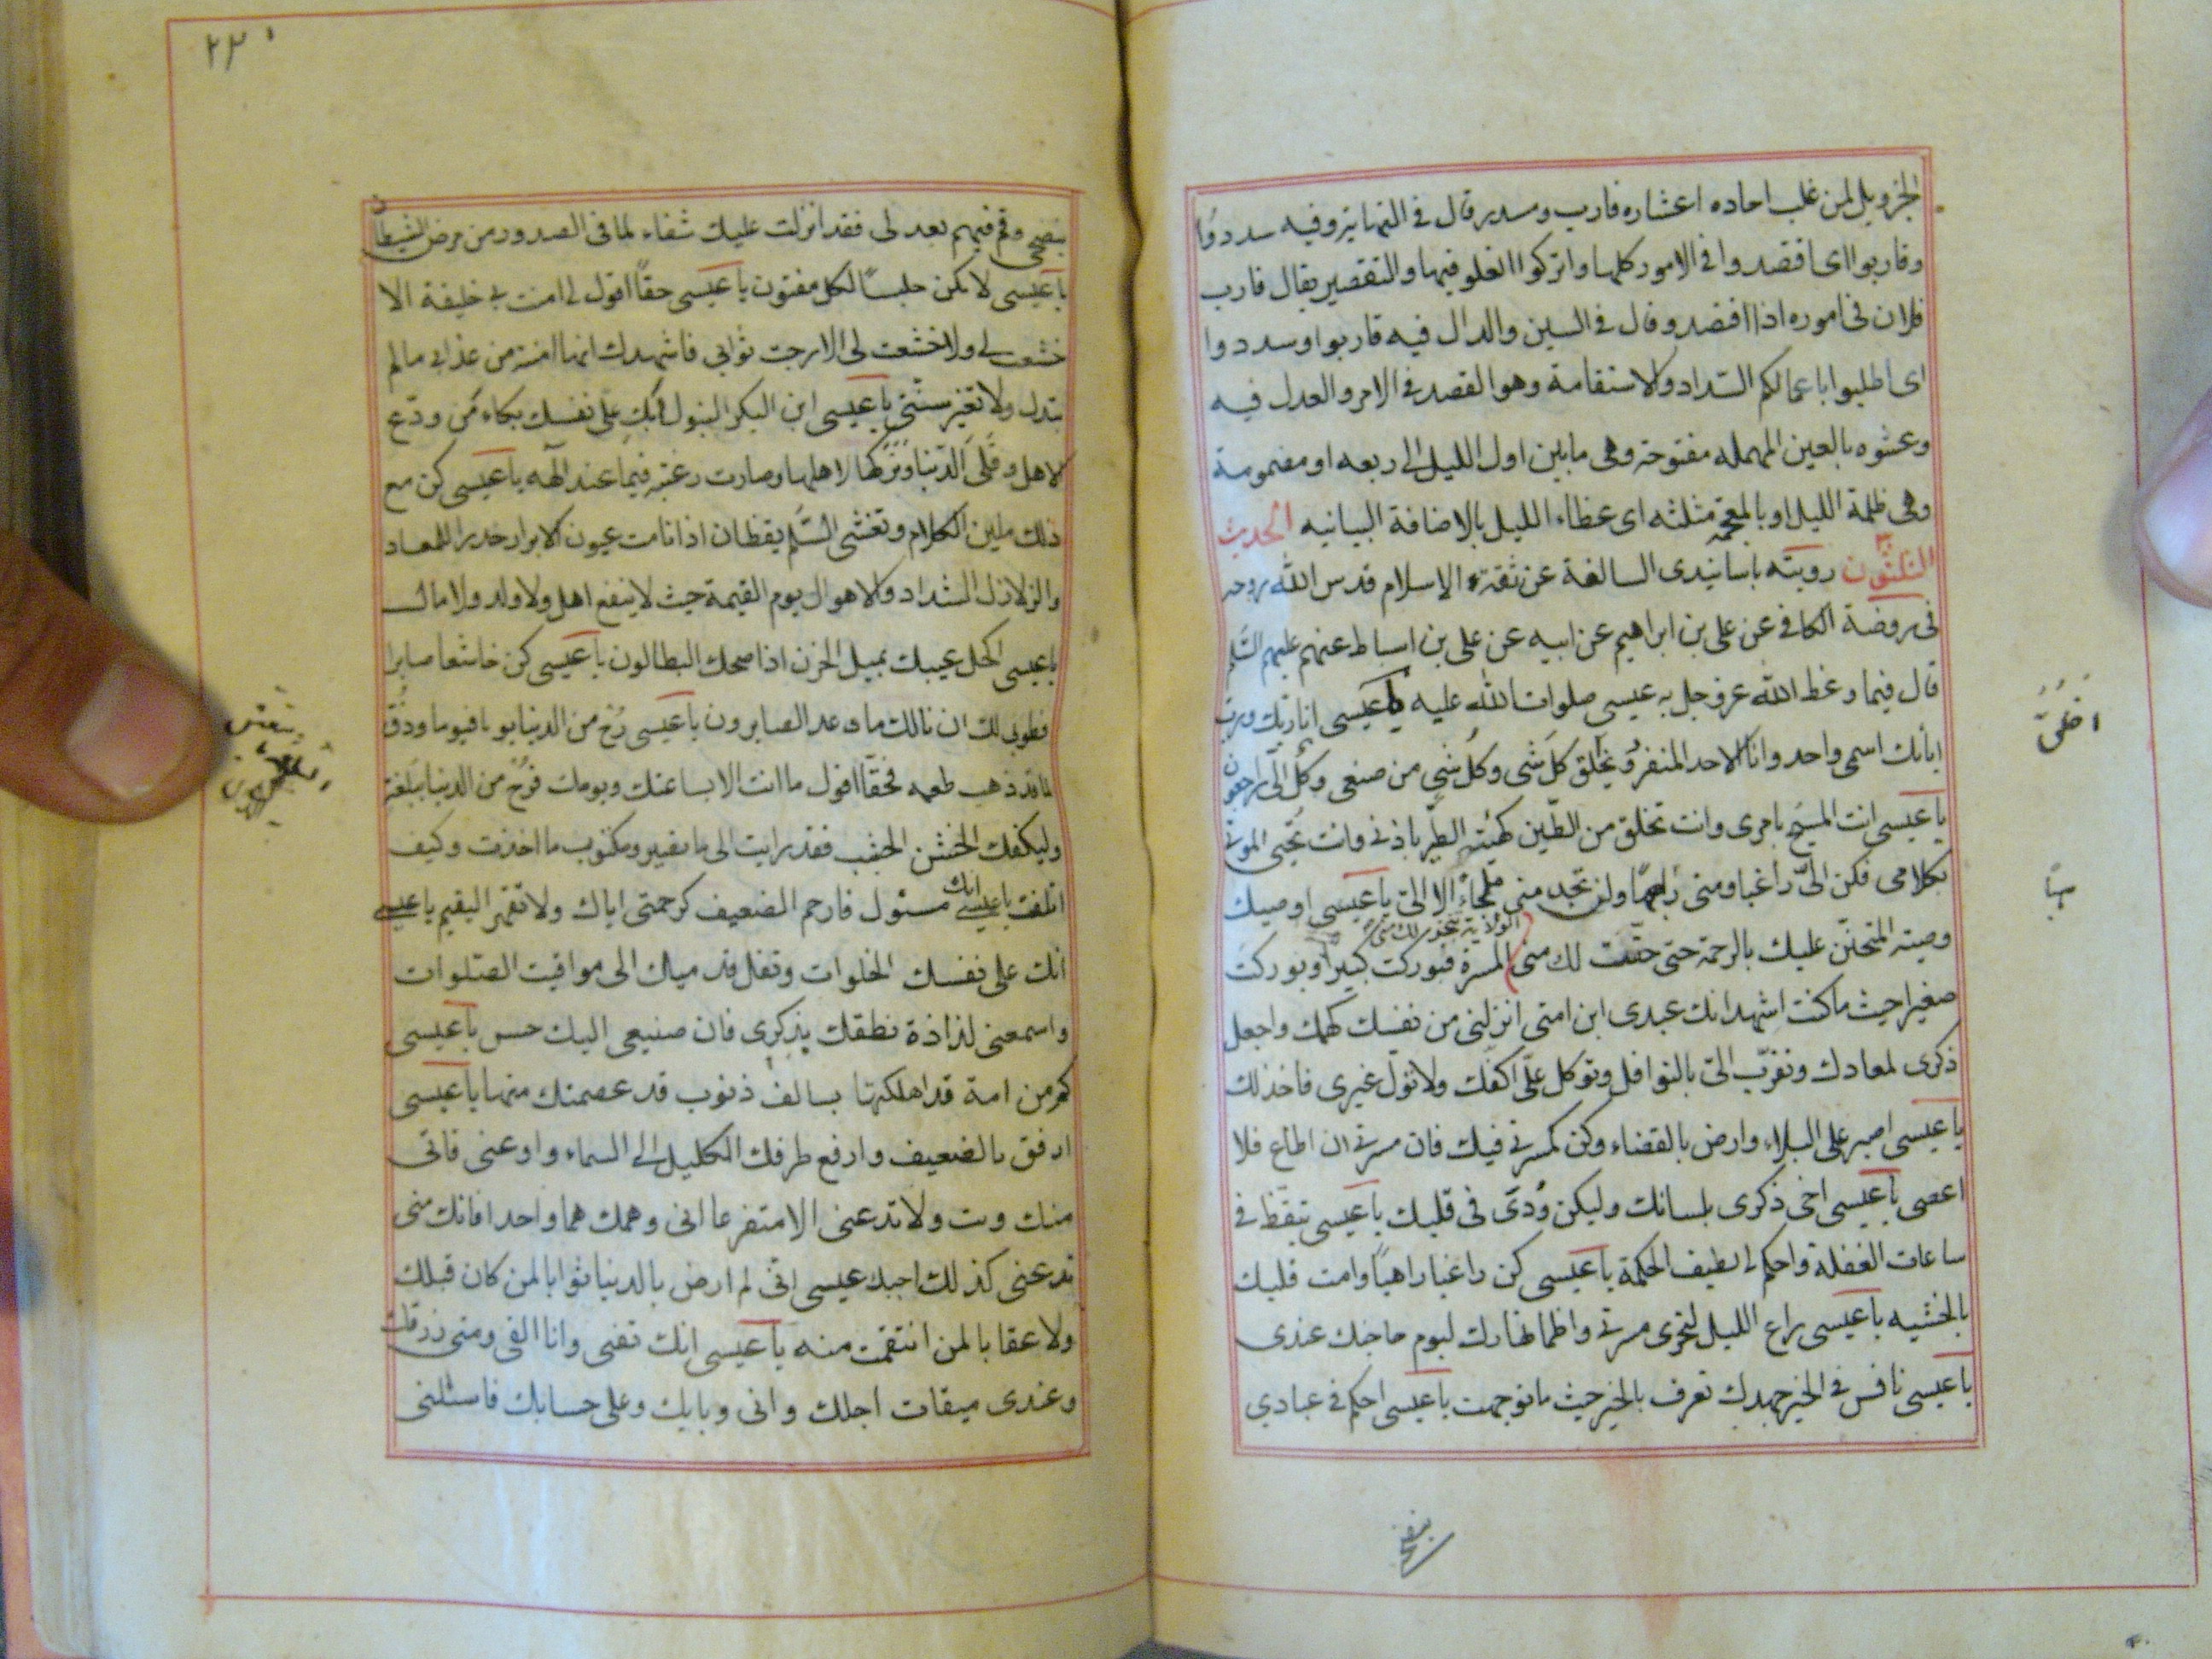 الخبر ويل لمن غلب احاده اعشاره قارب وسدد قال في النهاية وفيه سددوا
وقاربوا اى اقصدوا في الامور كلها واتركوا الغلو فيها والتقصير يقال قارب
فلان في اموره اذا اقتصد وقال في السين والدال فيه قاربوا وسددوا
اى اطلبوا باعمالكم السداد والاستقامة وهو القصد في الامر والعدل فيه
وعشوه بالعين المهمله مفتوحة وهى ما بين اول الليل الى ربعه او مضمومة
وهى ظلمة الليل او بالمعجمة مثلثه اى غطاء الليل بالاضافة البيانيه الحديث
الثلثون رويته باسانيدى السالفة عن ثقة الاسلام قدس الله روحه
في روضة الكافي عن على بن ابراهيم عن ابيه عن على بن اسباط عنهم عليهم السلم
قال فيما وعظ الله عز وجل به عيسى صلوات الله عليه يا عيسى انا ربك ورب
ابائك اسمى واحد وانا الاحد المتفرد بخلق كل شى وكل شى من صنعى وكل الى راجعون
يا عيسى انت المسيح بامرى وانت تخلق من الطين كهيئة الطير باذنى وانت تحيى الموتى
بكلامى فكن الى راغبا ومنى راهبا ولن تجد منى ملجاء الا الى يا عيسى اوصيك
وصية المتحنن عليك بالرحمة حتى حقت لك منى الولاية بتحريك منى المسرة فبوركت كبيرا وبوركت
صغيرا حيث ما كنت اشهد انك عبدى ابن امتى انزلنى من نفسك كهمك واجعل
ذكرى لمعادك وتقرب الى بالنوافل وتوكل على اكفك ولا تول غيرى فاخذلك
يا عيسى اصبر على البلاء وارض بالقضاء وكن كمسرتى فيك فان مسرتى ان اطاع فلا
اعصى يا عيسى احى ذكرى بلسانك وليكن ودى فى قلبك يا عيسى تيقظ فى
ساعات الغفلة واحكم لى لطيف الحكمة يا عيسى كن راغبا راهبا وامت قلبك
بالخشيه يا عيسى راع الليل لتحرى مسرتى واظما نهارك ليوم حاجتك عندى
يا عيسى نافس فى الخير جهدك تعرف بالخير حيث ما توجهت يا عيسى احكم فى عبادى
اخلى
هبا
بنصحى
٢٣٠
بنصحى وقم فيهم بعدلى فقد انزلت عليك شفاء لما فى الصدور من مرض الشيطان
يا عيسى لا تكن جليسا لكل مفتون يا عيسى حقا اقول لى امنت بى خليقة الا
خشعت لى ولا خشعت لى الا رجت ثوابى فاشهدك انها امنة من عذابى ما لم
تبدل ولا تغير سنتى يا عيسى ابن البكر البتول ابك على نفسك بكاء من ودع
الاهل وقلى الدنيا وتركها لاهلها وصارت رغبته فيما عند الهه يا عيسى كن مع
ذلك تلين الكلام وتفشى السلم يقظان اذا نامت عيون الابرار حذرا للمعاد
والزلازل الشداد والاهوال يوم القيمة حيث لا ينفع اهل ولا ولد ولا مال
يا عيسى اكحل عينك بميل الحزن اذا ضحك البطالون يا عيسى كن خاشعا صابرا
فطوبى لك ان نالك ما وعد الصابرون يا عيسى رح من الدنيا يوما فيوما وذق
لما قد ذهب طعمه فحقا اقول ما انت الا بساعتك ويومك فرح من الدنيا ببلغة
وليكفك الخشن الجشب فقد رايت الى ما تصير ومكتوب ما اخذت وكيف
اتلفت يا عيسى انك مسئول فارحم الضعيف كرحمتى اياك ولا تقهر اليتيم يا عيسى
ابك على نفسك الخلوات وتقل قدميك الى مواقيت الصلوات
واسمعنى لذاذة نطقك بذكرى فان صنيعى اليك حسن يا عيسى
كم من امة قد اهلكتها بسالف ذنوب قد عصمتك منها يا عيسى
ارفق بالضعيف وارفع طرفك الكليل الى السماء وادعنى فانى
منك وت ولا تدعنى الا متضرعا الى وهمك هما واحدا فانك متى
تدعنى كذلك اجبك عيسى انى لم ارض بالدنيا ثوابا لمن كان قبلك
ولا عقابا لمن انتقمت منه يا عيسى انك تفنى وانا ابقى ومنى رزقك
وعندى ميقات اجلك والى وبايك وعلى حسابك فاسئلنى